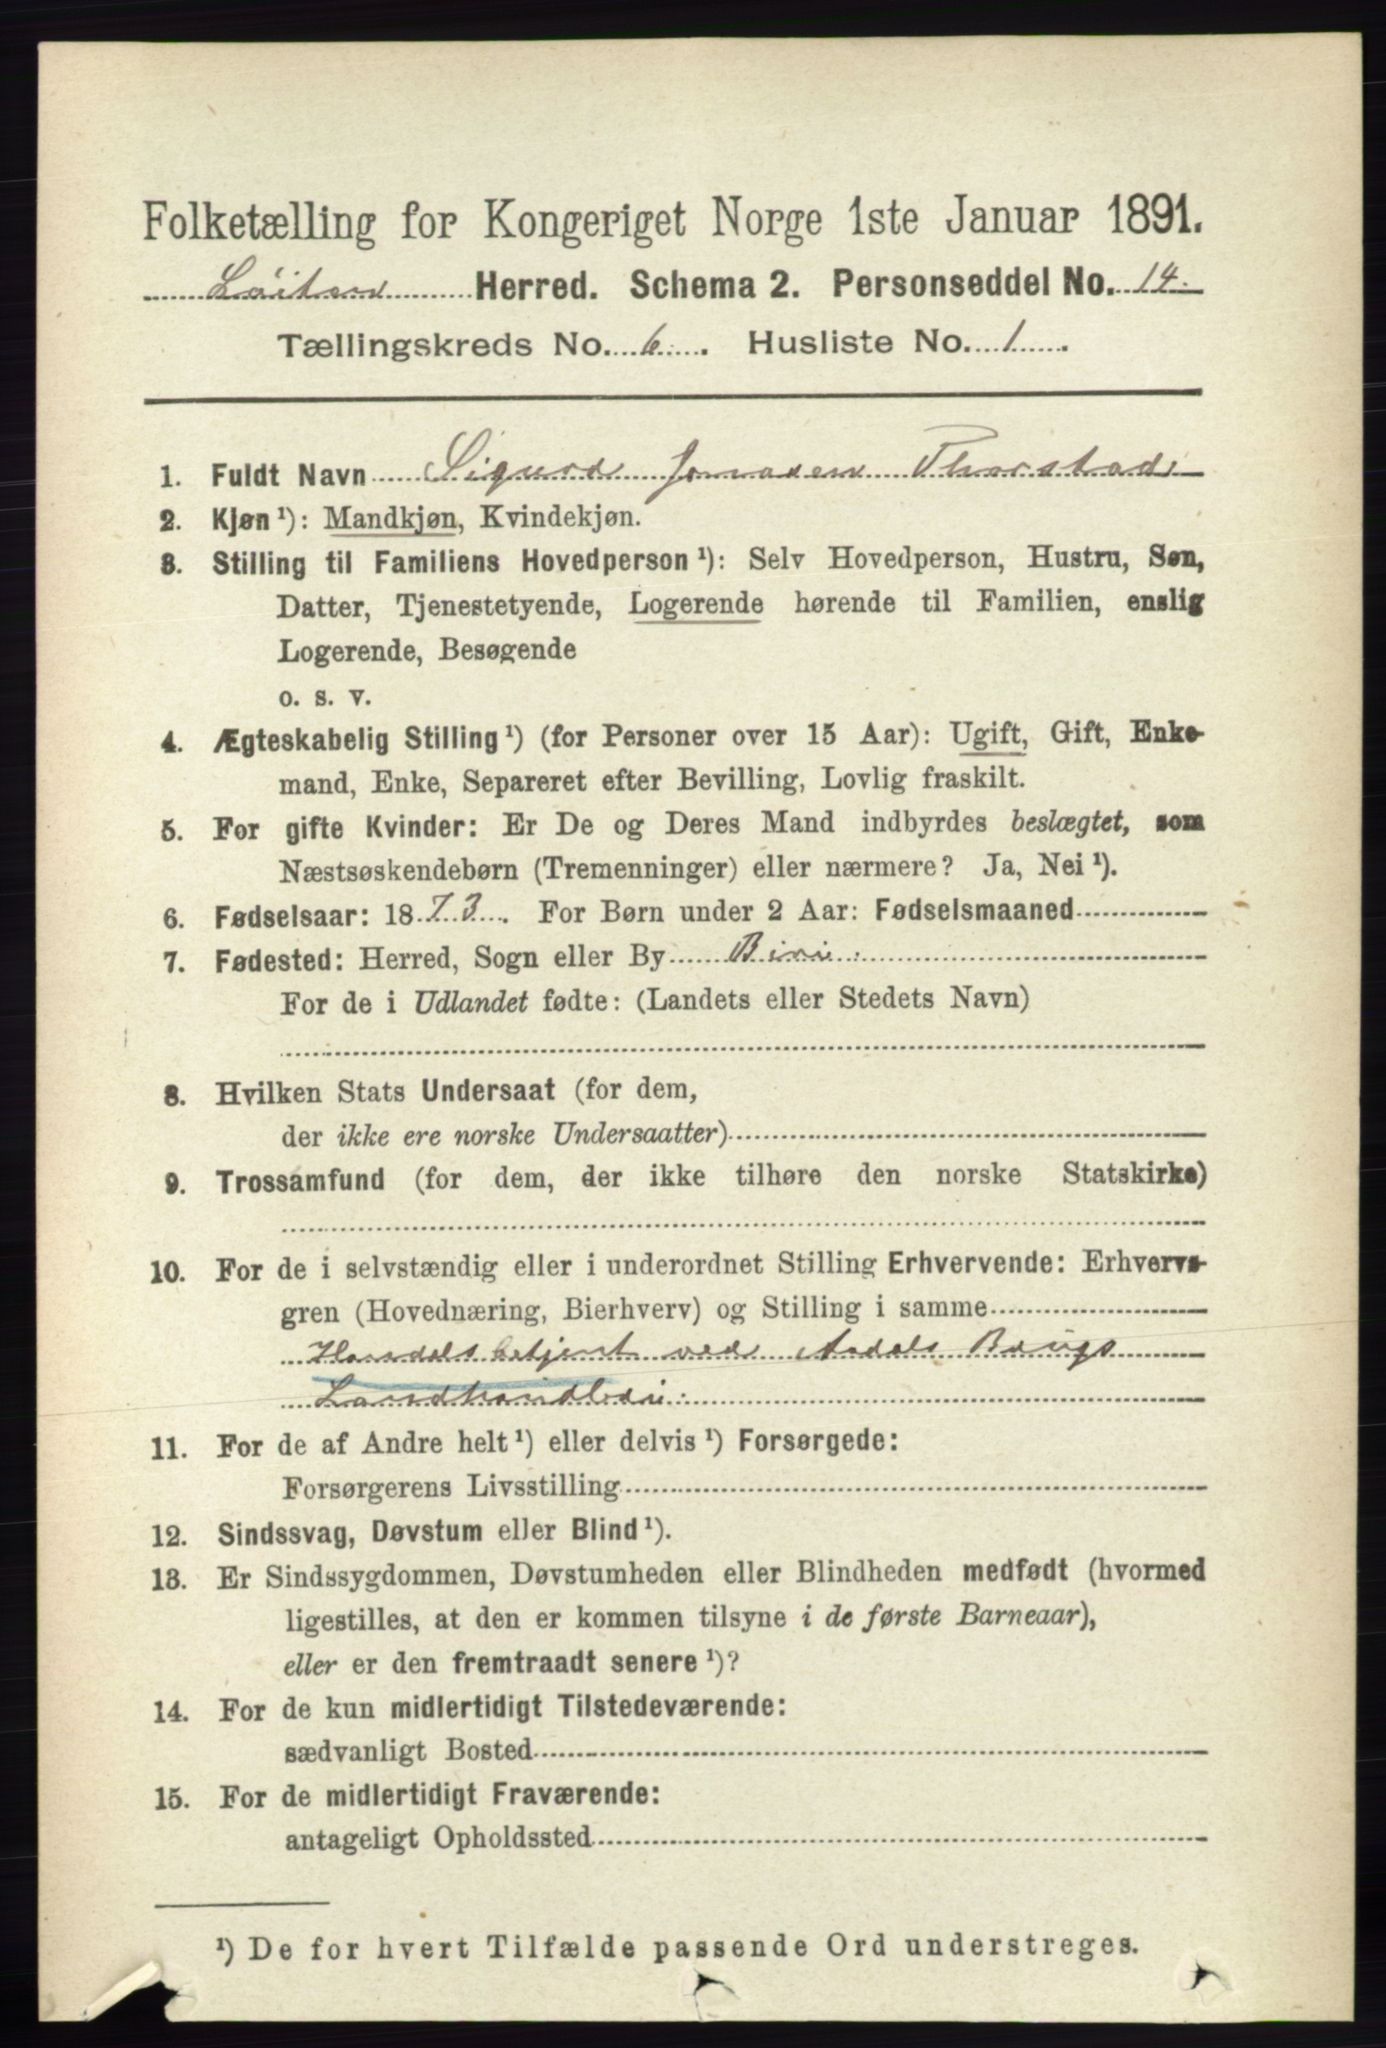 Folketælling for Kongeriget Norge 1ste Januar 1891.
Löiten Herred. Schema 2. Personseddel No. 14.
Tællingskreds No. 6. Husliste No. 1.
1. Fuldt Navn Sigurd Thorstad
2. Kjøn ¹): Mandkjøn, Kvindekjøn.
3. Stilling til Familiens Hovedperson ¹): Selv Hovedperson, Hustru, Søn,
Datter, Tjenestetyende, Logerende hørende til Familien, enslig
Logerende, Besøgende
o. s. v.
4. Ægteskabelig Stilling ¹) (for Personer over 15 Aar): Ugift, Gift, Enke-
mand, Enke, Separeret efter Bevilling, Lovlig fraskilt.
5. For gifte Kvinder: Er De og Deres Mand indbyrdes beslægtet, som
Næstsøskendebørn (Tremenninger) eller nærmere? Ja, Nei ¹).
6. Fødselsaar: 1873. For Børn under 2 Aar: Fødselsmaaned
7. Fødested: Herred, Sogn eller By Biri
For de i Udlandet fødte: (Landets eller Stedets Navn)
8. Hvilken Stats Undersaat (for dem,
der ikke ere norske Undersaatter)
9. Trossamfund (for dem, der ikke tilhøre den norske Statskirke)
10. For de i selvstændig eller i underordnet Stilling Erhvervende: Erhvervs-
gren (Hovednæring, Bierhverv) og Stilling i samme
Handelsbetjent ved Aadals Brugs
Landhandleri
11. For de af Andre helt ¹) eller delvis ¹) Forsørgede:
Forsørgerens Livsstilling
12. Sindssvag, Døvstum eller Blind ¹).
13. Er Sindssygdommen, Døvstumheden eller Blindheden medfødt (hvormed
ligestilles, at den er kommen tilsyne i de første Barneaar),
eller er den fremtraadt senere ¹)?
14. For de kun midlertidigt Tilstedeværende:
sædvanligt Bosted
15. For de midlertidigt Fraværende:
antageligt Opholdssted
¹) De for hvert Tilfælde passende Ord understreges.